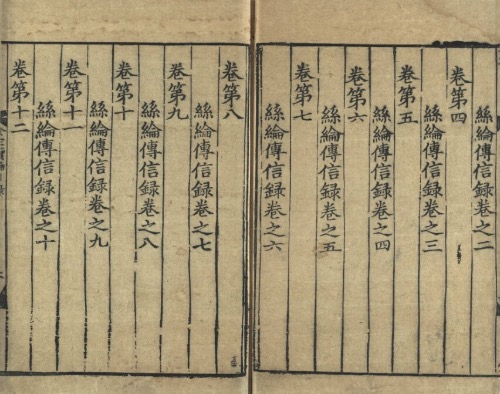 絲綸傳信録卷之二
卷第四
絲綸傳信録卷之三
卷第五
絲綸傳信録卷之四
卷第六
絲綸傳信録卷之五
卷第七
絲綸傳信録卷之六
卷第八
絲綸傳信録卷之七
卷第九
絲綸傳信録卷之八
卷第十
絲綸傳信録卷之九
卷第十一
絲綸傳信録卷之十
卷第十二